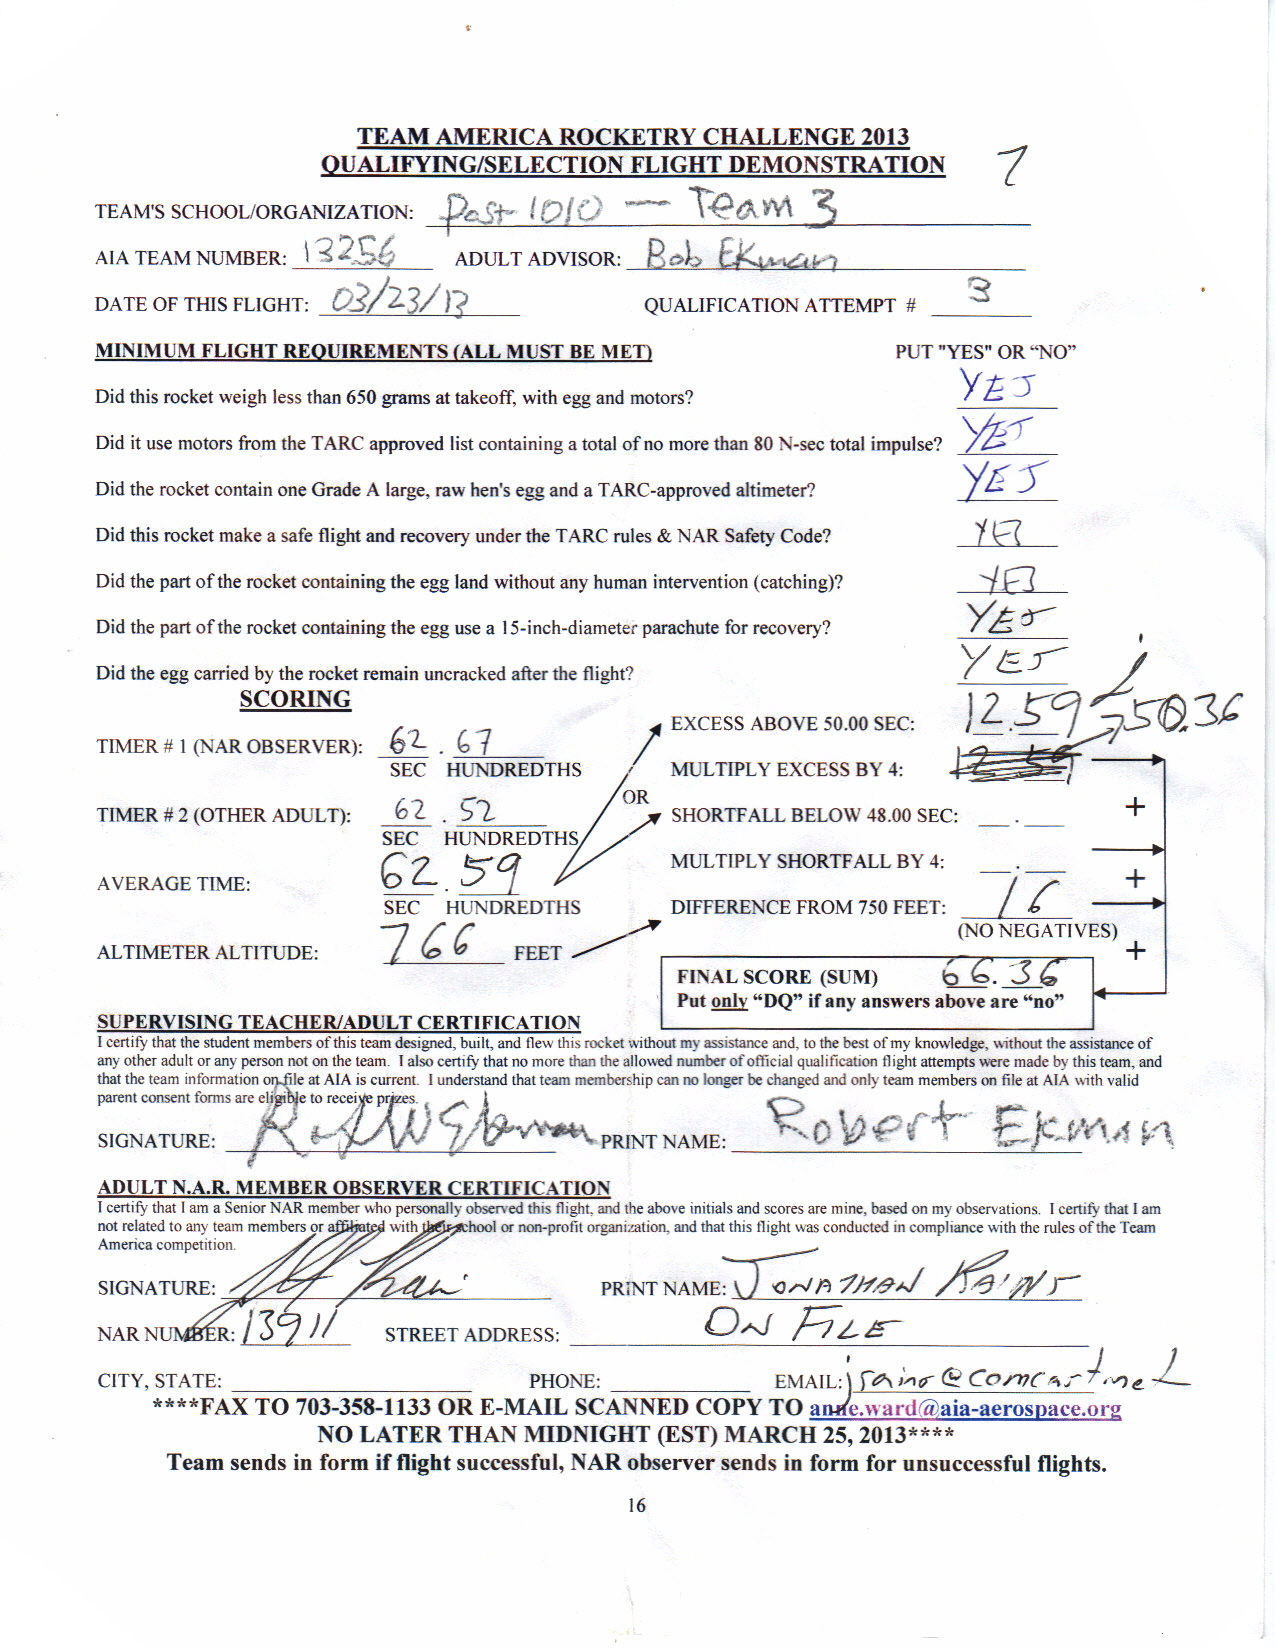 TEAM AMERICA ROCKETRY CHALLENGE 2013
QUALIFYING/SELECTION FLIGHT DEMONSTRATION 7
TEAM'S SCHOOL/ORGANIZATION: Post 1010 — Team 3
AIA TEAM NUMBER: 13256 ADULT ADVISOR: Bob Ekman
DATE OF THIS FLIGHT: 03/23/13 QUALIFICATION ATTEMPT # 3
MINIMUM FLIGHT REQUIREMENTS (ALL MUST BE MET) PUT "YES" OR “NO”
Did this rocket weigh less than 650 grams at takeoff, with egg and motors? YES
Did it use motors from the TARC approved list containing a total of no more than 80 N-sec total impulse? YES
Did the rocket contain one Grade A large, raw hen's egg and a TARC-approved altimeter? YES
Did this rocket make a safe flight and recovery under the TARC rules & NAR Safety Code? YES
Did the part of the rocket containing the egg land without any human intervention (catching)? YES
Did the part of the rocket containing the egg use a 15-inch-diameter parachute for recovery? YES
Did the egg carried by the rocket remain uncracked after the flight? YES
SCORING
EXCESS ABOVE 50.00 SEC: 12.59 50.36
TIMER # 1 (NAR OBSERVER): 62 . 67
SEC HUNDREDTHS MULTIPLY EXCESS BY 4:
OR
TIMER # 2 (OTHER ADULT): 62 . 52 SHORTFALL BELOW 48.00 SEC: . +
SEC HUNDREDTHS
MULTIPLY SHORTFALL BY 4: .
AVERAGE TIME: 62 . 59 +
SEC HUNDREDTHS DIFFERENCE FROM 750 FEET: 16
(NO NEGATIVES)
ALTIMETER ALTITUDE: 766 FEET +
FINAL SCORE (SUM) 66.36
Put only “DQ” if any answers above are “no”
SUPERVISING TEACHER/ADULT CERTIFICATION
I certify that the student members of this team designed, built, and flew this rocket without my assistance and, to the best of my knowledge, without the assistance of
any other adult or any person not on the team. I also certify that no more than the allowed number of official qualification flight attempts were made by this team, and
that the team information on file at AIA is current. I understand that team membership can no longer be changed and only team members on file at AIA with valid
parent consent forms are eligible to receive prizes.
SIGNATURE: PRINT NAME: Robert Ekman
ADULT N.A.R. MEMBER OBSERVER CERTIFICATION
I certify that I am a Senior NAR member who personally observed this flight, and the above initials and scores are mine, based on my observations. I certify that I am
not related to any team members or affiliated with their school or non-profit organization, and that this flight was conducted in compliance with the rules of the Team
America competition.
SIGNATURE: PRINT NAME: JONATHAN RAINS
NAR NUMBER: 13911 STREET ADDRESS: ON FILE
CITY, STATE: PHONE: EMAIL:
****FAX TO 703-358-1133 OR E-MAIL SCANNED COPY TO anne.ward@aia-aerospace.org
NO LATER THAN MIDNIGHT (EST) MARCH 25, 2013****
Team sends in form if flight successful, NAR observer sends in form for unsuccessful flights.
16